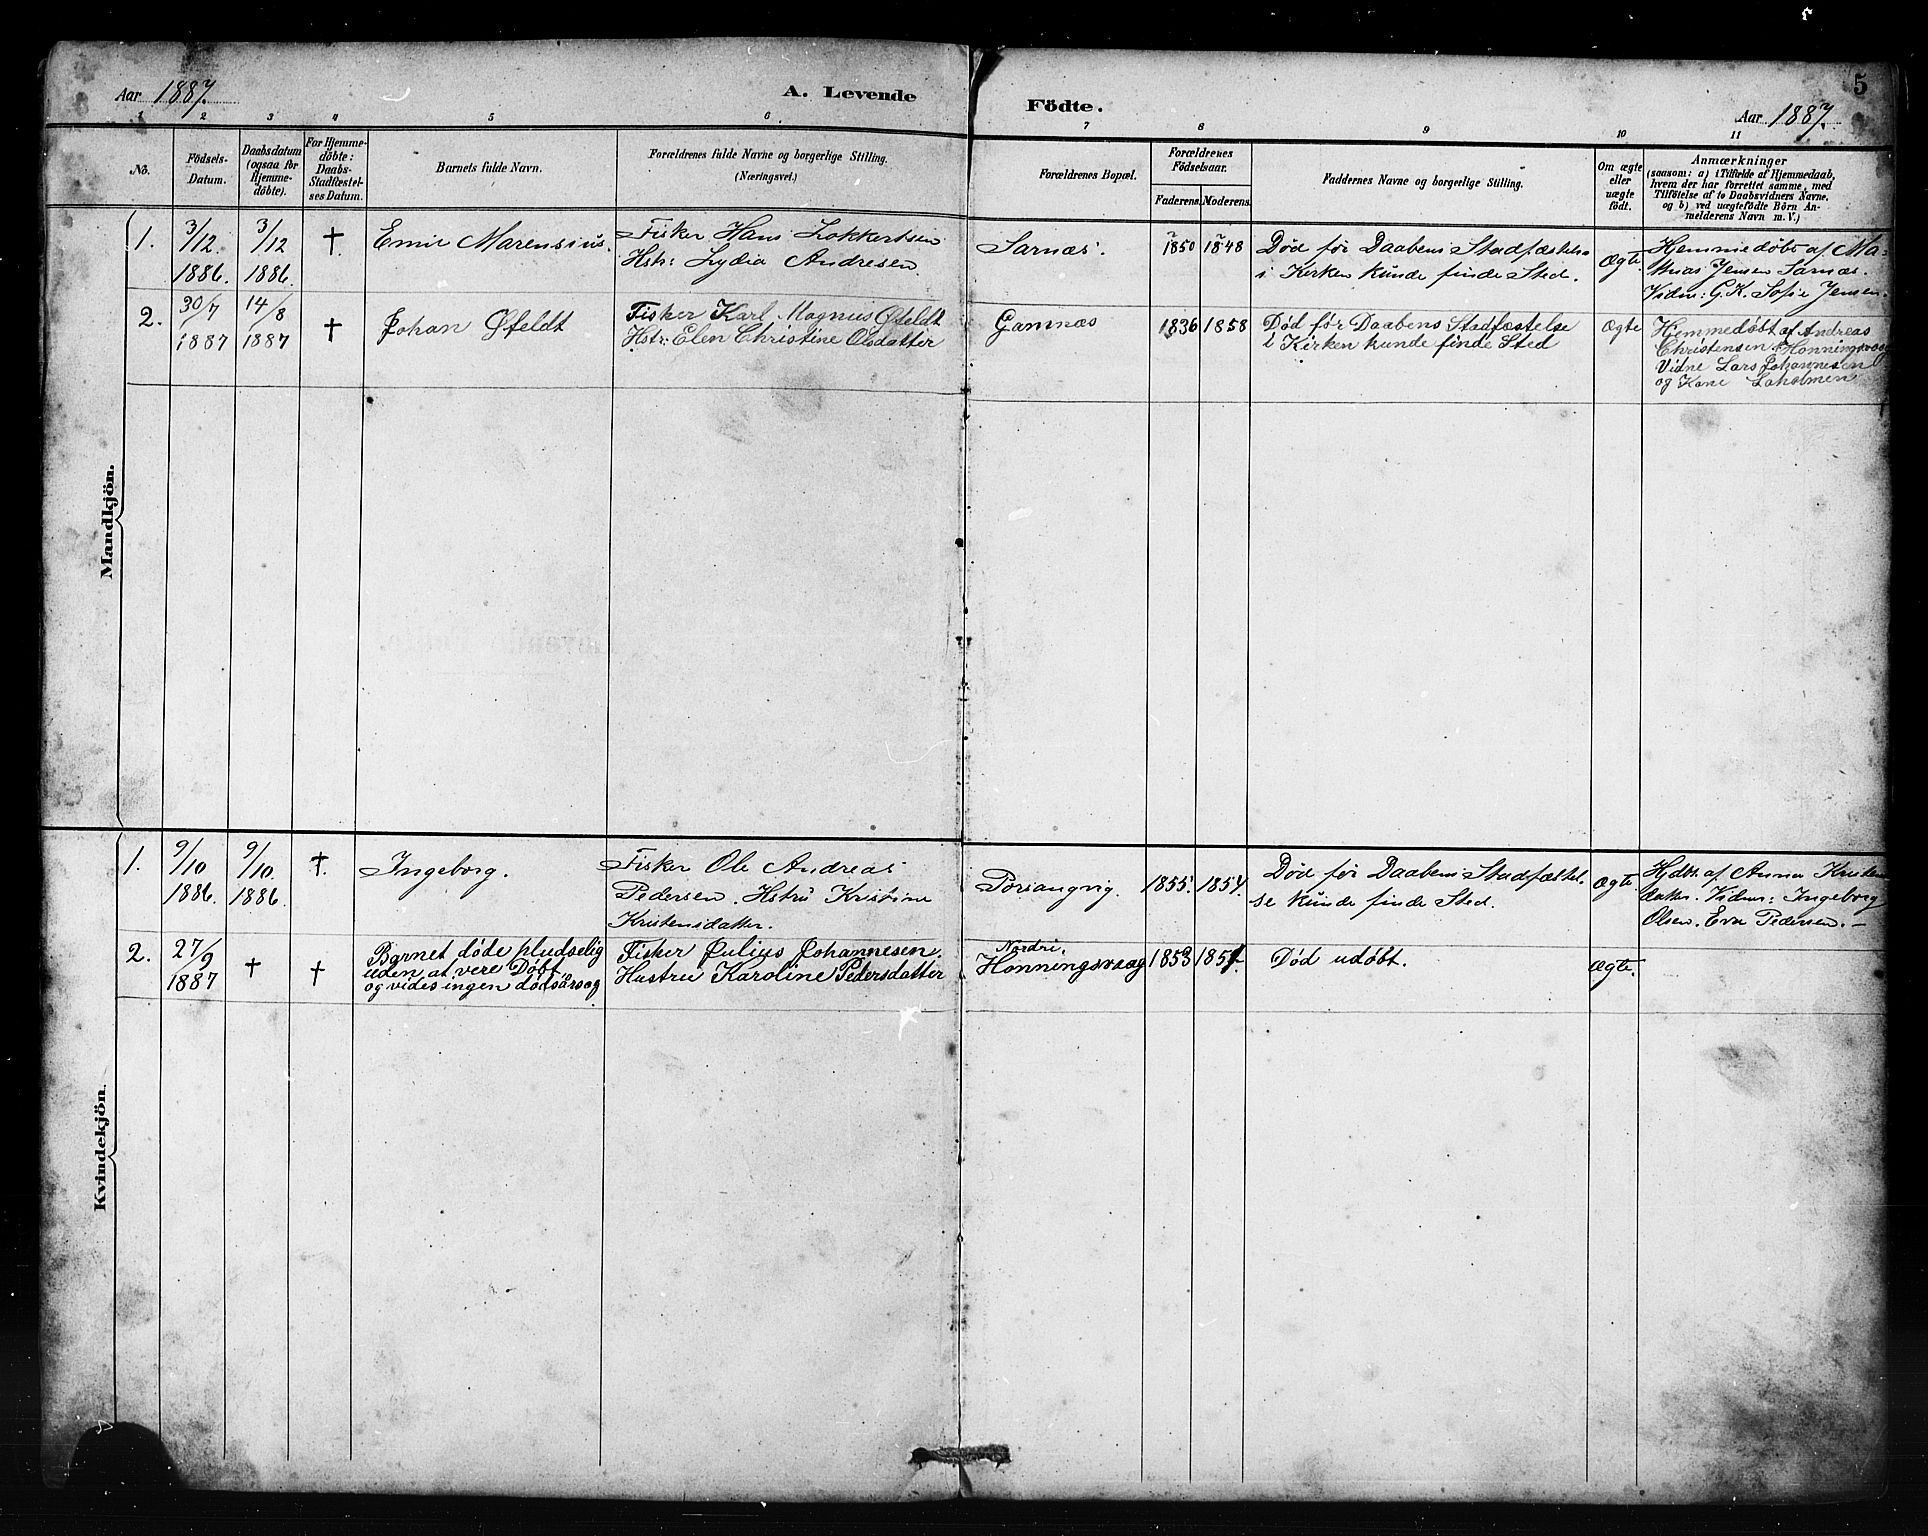 5
Aar 1887.
A. Levende
Födte.
Aar 1887.
1 2 3 4 5 6 7 8 9 10 11
No.
Födsels-
Datum.
Daabsdatum
(ogsaa for
Hjemme-
döbte).
For Hjemme-
döbte:
Daabs-
Stadfæstel-
ses Datum.
Barnets fulde Navn.
Forældrenes fulde Navne og borgerlige Stilling.
(Næringsvei.)
Forældrenes Bopæl.
Forældrenes
Födselsaar.
Faderens.
Moderens.
Faddernes Navne og borgerlige Stilling.
Om ægte
eller
uægte
födt.
Anmærkninger
(saasom: a) i Tilfælde af Hjemmedaab,
hvem der har forrettet samme, med
Tilföielse af to Daabsvidners Navne,
og b) ved uægtefödte Börn An-
melderens Navn m. V.)
Mandkjön.
1.
3/12
1886.
3/12
1886.
†
Emil Marensius.
Fisker Hans Lokkertsen
Hstr: Lydia Andresen.
Sarnæs.
1850
1848
Død før Daabens Stadfæstelse
i Kirken kunde finde Sted.
Ægte
Hemmedøbt af Ma-
thias Jensen Sarnæs.
Vidn: G.K. Sofie Jensen.
2.
30/7
1887
14/8
1887
†
Johan Øfeldt
Fisker Karl Magnus Øfeldt
Hstr: Elen Christine Olsdatter
Gamnæs
1836
1858
Død før Daabens Stadfæstelse
i Kirken kunde finde Sted
Ægte
Hjemmedøbt af Andreas
Christensen Honningsvaag
Vidne Lars Johannesen
og Kone
Kvindekjön.
1.
9/10
1886.
9/10
1886.
†.
Ingeborg.
Fisker Ole Andreas
Pedersen. Hstru Kristine
Kristensdatter.
Porsangvig.
1855.
1854.
Død før Daabens Stadfæstel-
se kunde finde Sted.
Ægte.
Hjdbt. af Anna Kristens
datter. Vidner: Ingeborg
Olsen. Eva Pedersen. –
2.
27/9
1887
†
†
Barnet døde pludselig
uden at vere Døbt
og vides ingen dødsårsag
Fisker Julius Johannesen.
Hustru Karoline Pedersdatter
Nordri.
Honningsvaag
1853
1851.
Død udøbt.
Ægte.